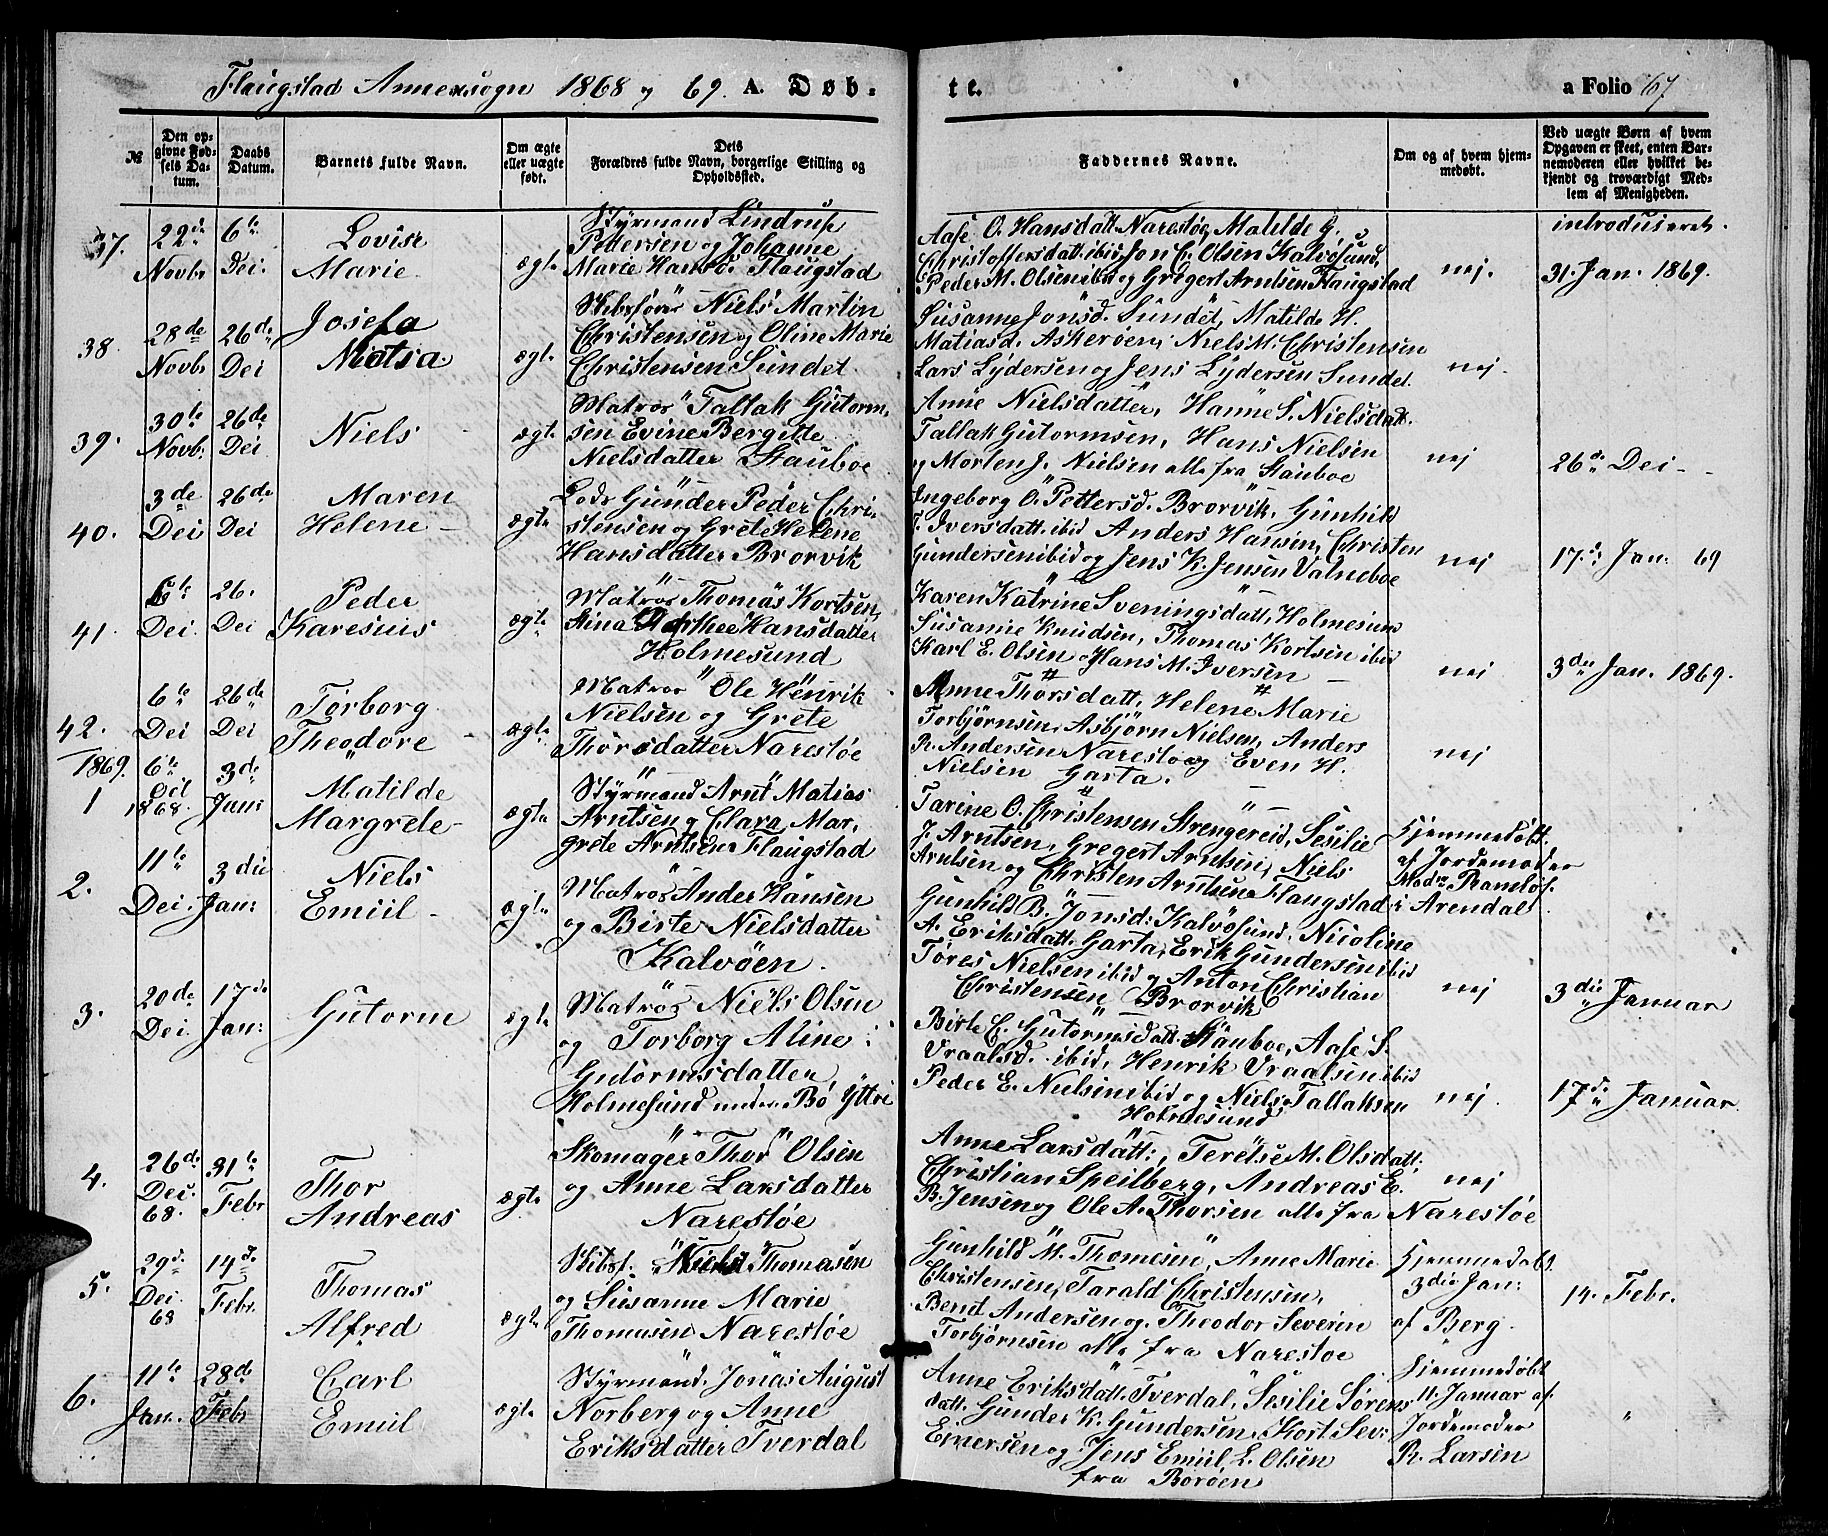 Flaugstad Annexsogn 1868 og 69. A. Døb-
te.
a Folio 67
№
Den op-
givne Fød-
sels Da-
tum.
Daabs
Datum.
Barnets fulde Navn.
Om ægte
eller uægte
født.
Dets
Forældres fulde Navn, borgerlige Stilling og
Opholdssted.
Faddernes Navne.
Om og af hvem hjem-
medøbt.
Ved uægte Børn af hvem
Opgaven er skeet, enten Bar-
nemoderen eller hvilket be-
kjendt og troværdigt Med-
lem af Menigheden.
37.
22de
Novbr
6te
Dei.
Lovise
Marie
ægt.
Styrmand Lindrup
Pedersen og Johanne
Marie Hansd. Flaugstad
Aase O. Hansdatt. Narestø, Matilde G.
Christoffersdatt. ibid Jon C. Olsen Kalvøsund,
Peder M. Olsen ibid og Gregert Arntsen Flaugstad
nej.
introduseret.
31. Jan. 1869.
38.
28de
Novbr
26de
Dei
Josefa
Motsa.
ægt.
Skibsfører Niels Martin
Christensen og Oline Marie
Christensen Sundet.
Susanne Jonsd. Sundet, Matilde H.
Matiasd. Askerøen, Niels M. Christensen
Lars Lydersen og Jens Lydersen Sundet.
nej.
39.
30te
Novb.
26de
Dei
Niels
ægt.
Matros Tallak Gutorm-
sen Evine Bergitte
Nielsdatter Stauboe
Anne Nielsdatter, Hanne S. Nielsdat.
Tallak Gutormsen, Hans Nielsen
og Morten J. Nielsen alle fra Stauboe
nej
26de Dei -
40.
3de
Dei
26de
Dei
Maren
Helene -
ægt.
Lods Gunder Peder Chri-
stensen og Grete Helene
Hansdatter Brorvik
Ingeborg O. Pettersd. Brorvik, Gunhild
T. Iversdatt. ibid Anders Hansen, Christen
Gundersen ibid og Jens K. Jensen Valneboe
nej
17de Jan. 69
41.
6te
Dei.
26.
Dei
Peder
Karesius
ægt.
Matros Thomas Kortsen,
Stina Dorthee Hansdatter
Holmesund
Karen Katrine Sveningsdatt, Holmesund
Susanne Knudsen, Thomas Kortsen ibid
Karl E. Olsen, Hans M. Iversen -
nej
3die Jan. 1869.
42.
6te
Dei
26de
Dei
Torborg
Theodore -
ægt.
Matros Ole Henrik
Nielsen og Grete
Thorsdatter Narestøe
Anne Thorsdatt, Helene Marie
Torbjørnsen, Asbjørn Nielsen, Anders
R. Andersen Narestø og Even H.
Nielsen Garta.
nej
1869.
1
6te
Dei
1868.
3de
Jan:
Matilde
Margrete -
ægt.
Styrmand Arnt Matias
Arntsen og Clara Mar-
grete Arntsen Flaugstad
Tarine O. Christensen Strengereid, Sesilie
J. Arntsen, Gregert Arntsen, Niels
Arntsen og Christen Arntsen Flaugstad
Hjemmedøbt
af Jordemoder
Mad. Ramløf.
i Arendal
2.
11te
Dei.
3die
Jan:
Niels
Emiil -
ægt.
Matros Ander Hansen
og Birte Nielsdatter
Kalvøen.
Gunhild B. Jonsd: Kalvøsund, Nicoline
A. Eriksdatt. Garta, Erik Gundersen ibid
Tøres Nielsen ibid og Anton Christian
Christensen Brorvik
nej
3die Januar
3.
20de
Dei.
17de
Jan:
Gutorm
ægt.
Matros Niels Olsen
og Torborg Aline
Gutormsdatter
Holmesund under Bø Yttre
Birte C. Gutormsdatt. Stauboe, Aase S.
Vraalsd. ibid, Henrik Vraalsen ibid
Peder E. Nielsen ibid og Niels Tallaksen
Holmesund
nej.
17de Januar.
4.
26de
Dei.
68.
31te
Febr
Thor
Andreas
ægt.
Skomager Thor Olsen
og Anne Larsdatter
Narestøe
Anne Larsdatt:, Teretse M. Olsdatt:
Christian Speilberg, Andreas E.
B. Jensen og Ole A. Thorsen alle fra Narestøe
nej
5.
29de
Dei.
68
14de
Febr.
Thomas
Alfred
ægt.
Skibsf. Niels Thomasen
og Susanne Marie
Thomasen Narestøe
Gunhild M. Thomesen, Anne Marie
Christensen, Tarald Christensen,
Bend Andersen og Theodor Severin
Torbjørnsen alle fra Narestoe
Hjemmedøbt.
3die Jan:
af Berg.
14. Febr.
6.
11te
Jan.
28de
Febr
Carl
Emiil
ægt.
Styrmand Jonas August
Norberg og Anne
Eriksdatter Tverdal
Anne Eriksdatt. Tverdal, Sesilie Sørens
datt. Gunder K. Gundersen, Kort Sev:
Emersen og Jens Emiil L. Olsen
fra Borøen
Hjemmedøbt
11. Januar af
Jordemoder
R. Larsen
"